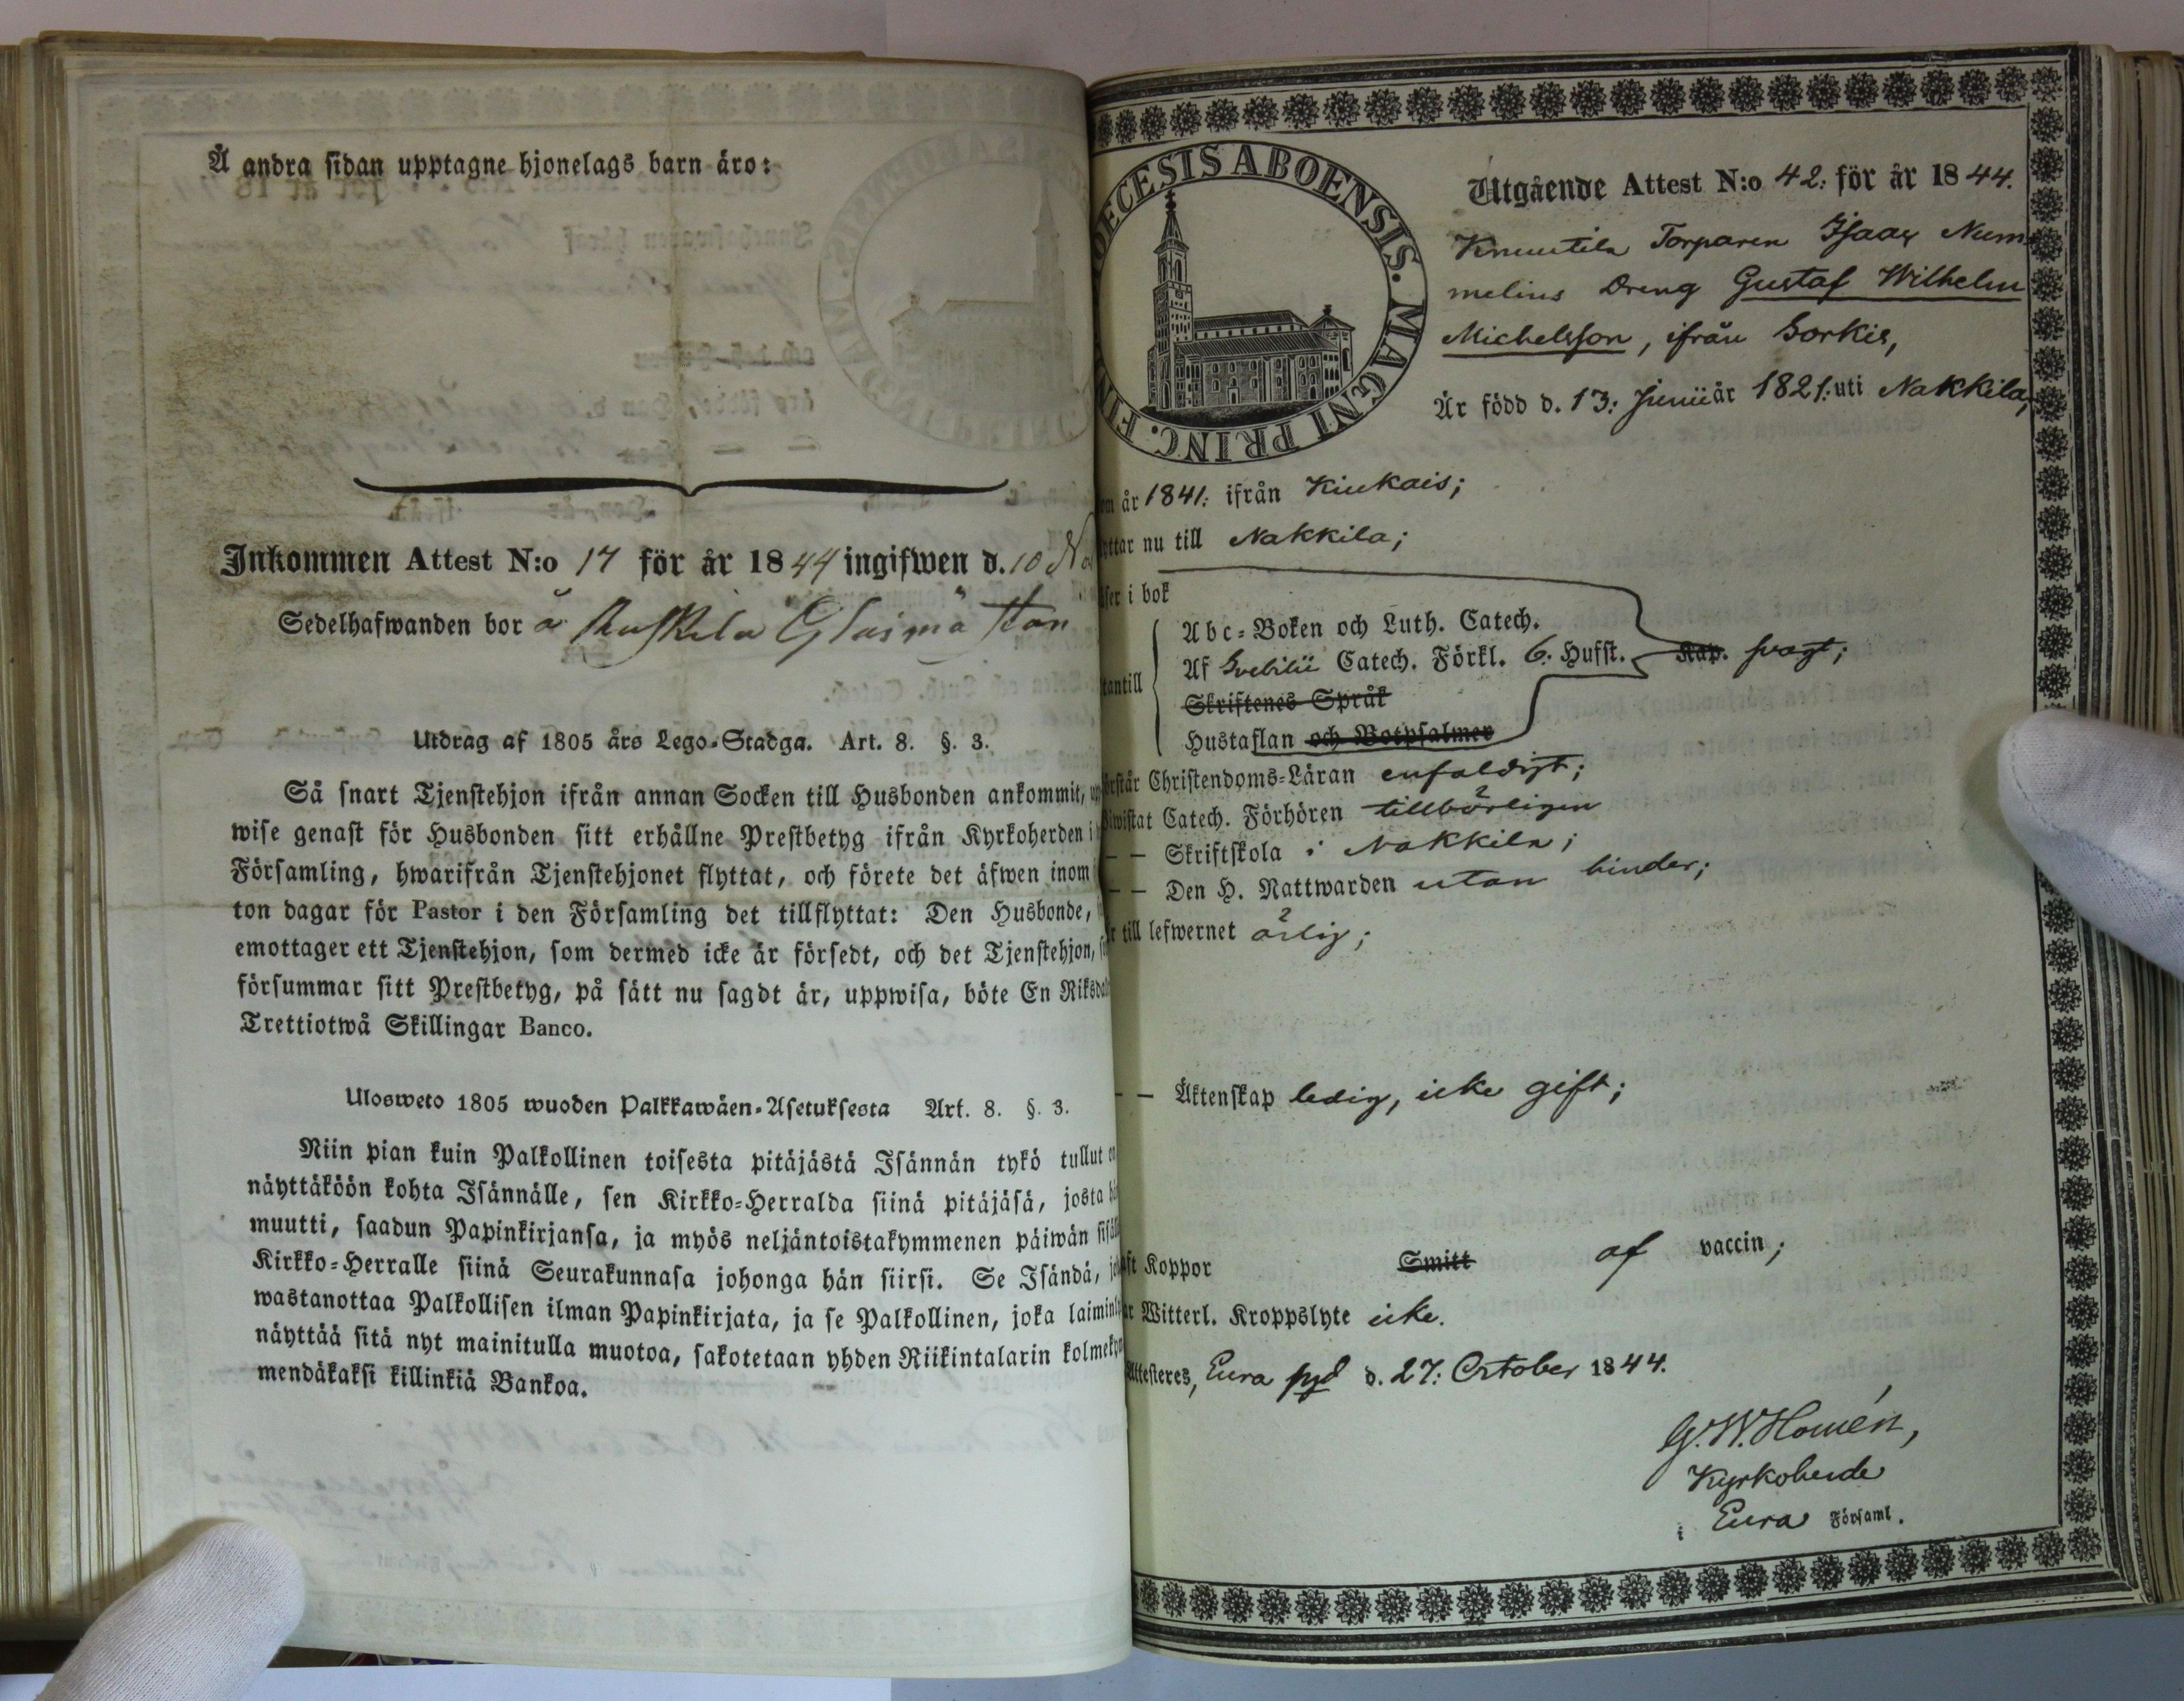 Å andra sidan upptagne hjonelags barn äro:
Inkommen Attest N:o 17 för år 1844 ingifwen d. 10
Sedelhafwanden bor å
Utdrag af 1805 års Lego-Stadga. Art. 8. §. 3.
Så snart Tjenstehjon ifrån annan Socken till Husbonden ankommit,
wise genast för Husbonden sitt erhållne Prestbetyg ifrån Kyrkoherden i
Församling, hwarifrån Tjenstehjonet flyttat, och förete det äfwen inom
ton dagar för Pastor i den Församling det tillflyttat: Den Husbonde,
emottager ett Tjenstehjon, som dermed icke är försedt, och det Tjenstehjon,
försummar sitt Prestbetyg, på sätt nu sagdt är, uppwisa, böte En Riksdal
Trettiotwå Skillingar Banco.
Ulosweto 1805 wuoden Palkkawäen-Asetuksesta Art. 8. §. 3.
Niin pian kuin Palkollinen toisesta pitäjästä Isännän tykö tullut
näyttäköön kohta Isännälle, sen Kirkko-Herralda siinä pitäjäsä, josta
muutti, saadun Papinkirjansa, ja myös neljäntoistakymmenen päiwän sisäl
Kirkko-Herralle siinä Seurakunnasa johonga hän siirsi. Se Isändä,
wastanottaa Palkollisen ilman Papinkirjata, ja se Palkollinen, joka laimin
näyttää sitä nyt mainitulla muotoa, sakotetaan yhden Riikintalarin kolmeky
mendäkaksi killinkiä Bankoa.
OECESIS ABOENSIS. MAGNI PRINC. FIN
Utgående Attest N:o 42: för år 1844.
Knuutila Torparen Isaac Num-
melius Dreng Gustaf Wilhelm
Michelsson, ifrån Sorkis,
Är född d. 13: Junii år 1821: uti Nakkila,
om år 1841: ifrån Kiukais;
yttar nu till Nakkila;
äser i bok
Abc-Boken och Luth. Catech.
Af Svebilii Catech. Förkl. 6: Hufst. Kap. svagt;
tantill
Skriftenes Språk
Hustaflan och Botpsalmer
örstår Christendoms-Läran enfaldigt;
iwistat Catech. Förhören tillbörligen
– – Skriftskola i Nakkila;
– – Den H. Nattwarden utan hinder;
r till lefwernet ärlig;
– – Äktenskap ledig, icke gift;
aft Koppor Smitt af vaccin;
ar Witterl. Kroppslyte icke.
Attesteres, Eura pgd d. 27: October 1844.
G. W. Homén,
Kyrkoherde
i Eura Församl.